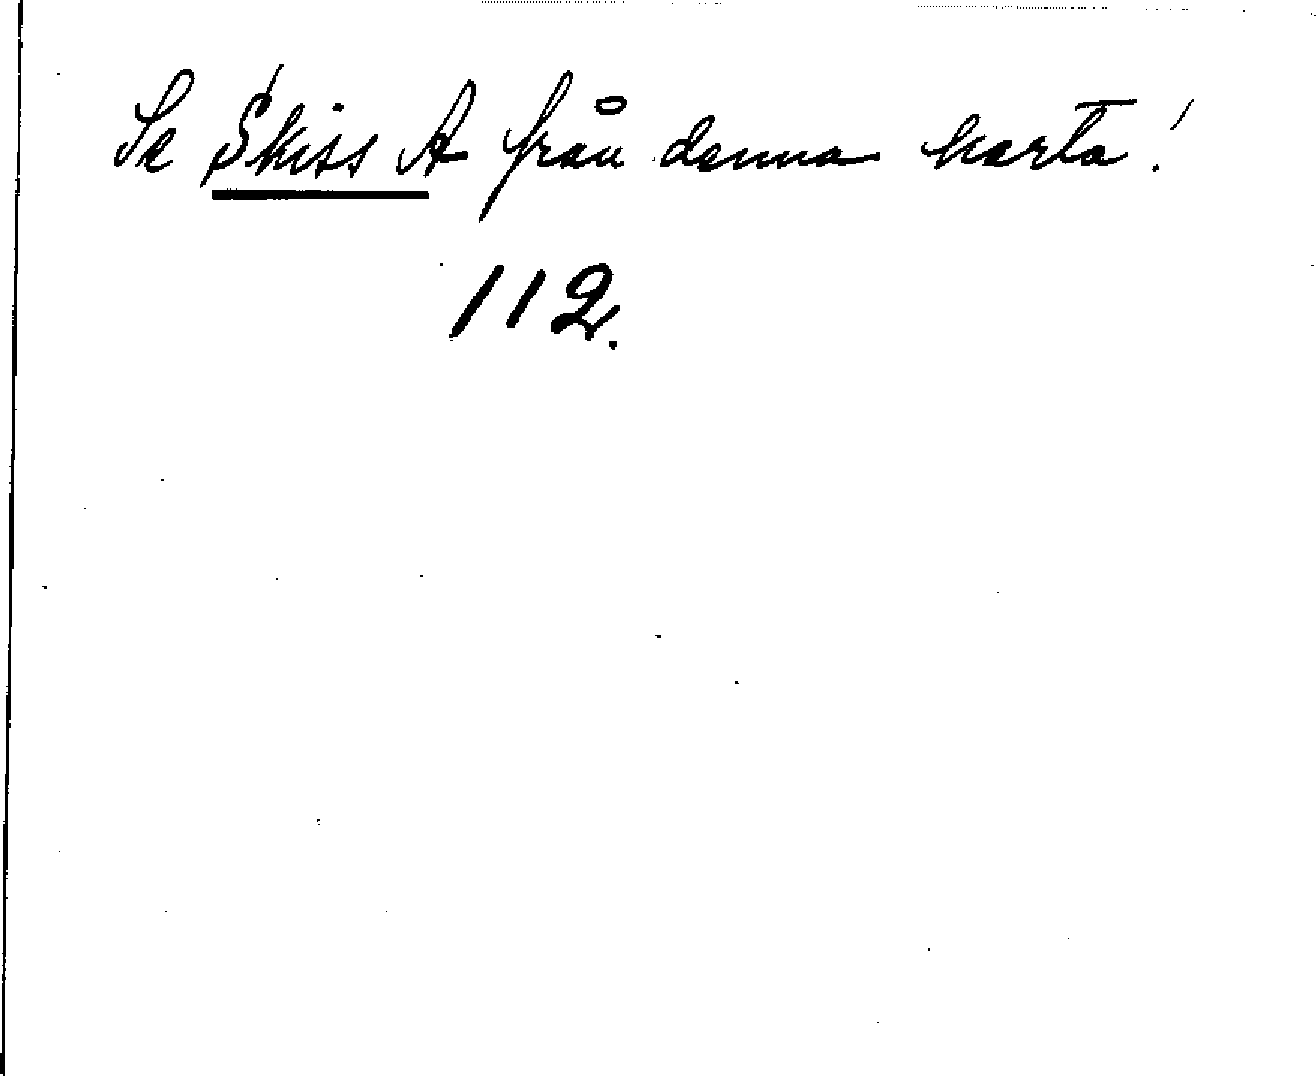 Se Skiss A från denna karta!
112.